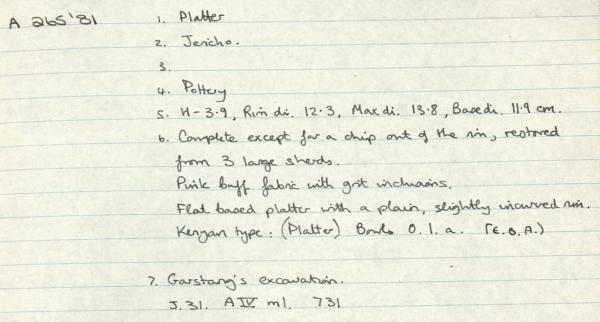 A 265'81
1. Platter
2. Jericho.
3.
4. Pottery
5. H-3.9, Rim di. 12.3, Max di. 13.8, Base di. 11.9 cm.
6. Complete except for a chip out of the rim, restored
from 3 large sherds.
Pink buff fabric with grit inclusions.
Flat based platter with a plain, slightly incurved rim.
Kenyan type: (Platter) Bowls O.1.a. (E.B.A.)
7. Garstang's excavation.
J.31. A IV m1. 731